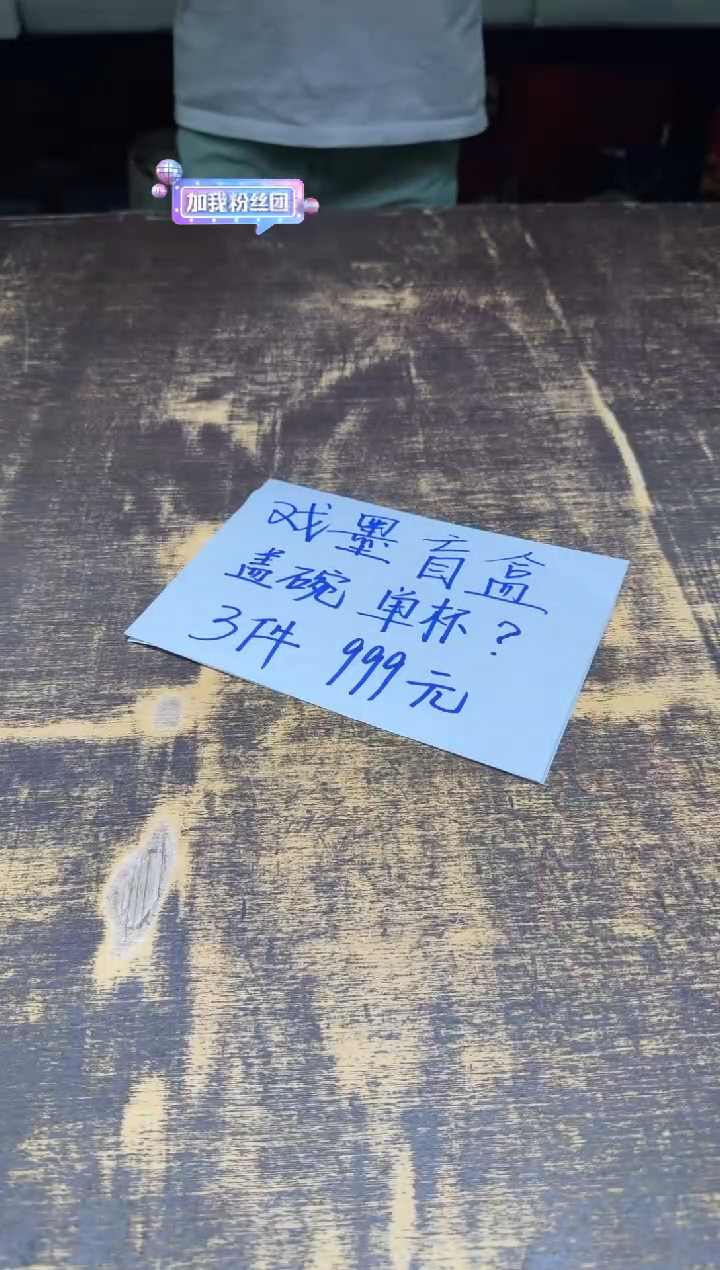 加我粉丝团
戏墨盲盒
盖碗 单杯?
3件 999元